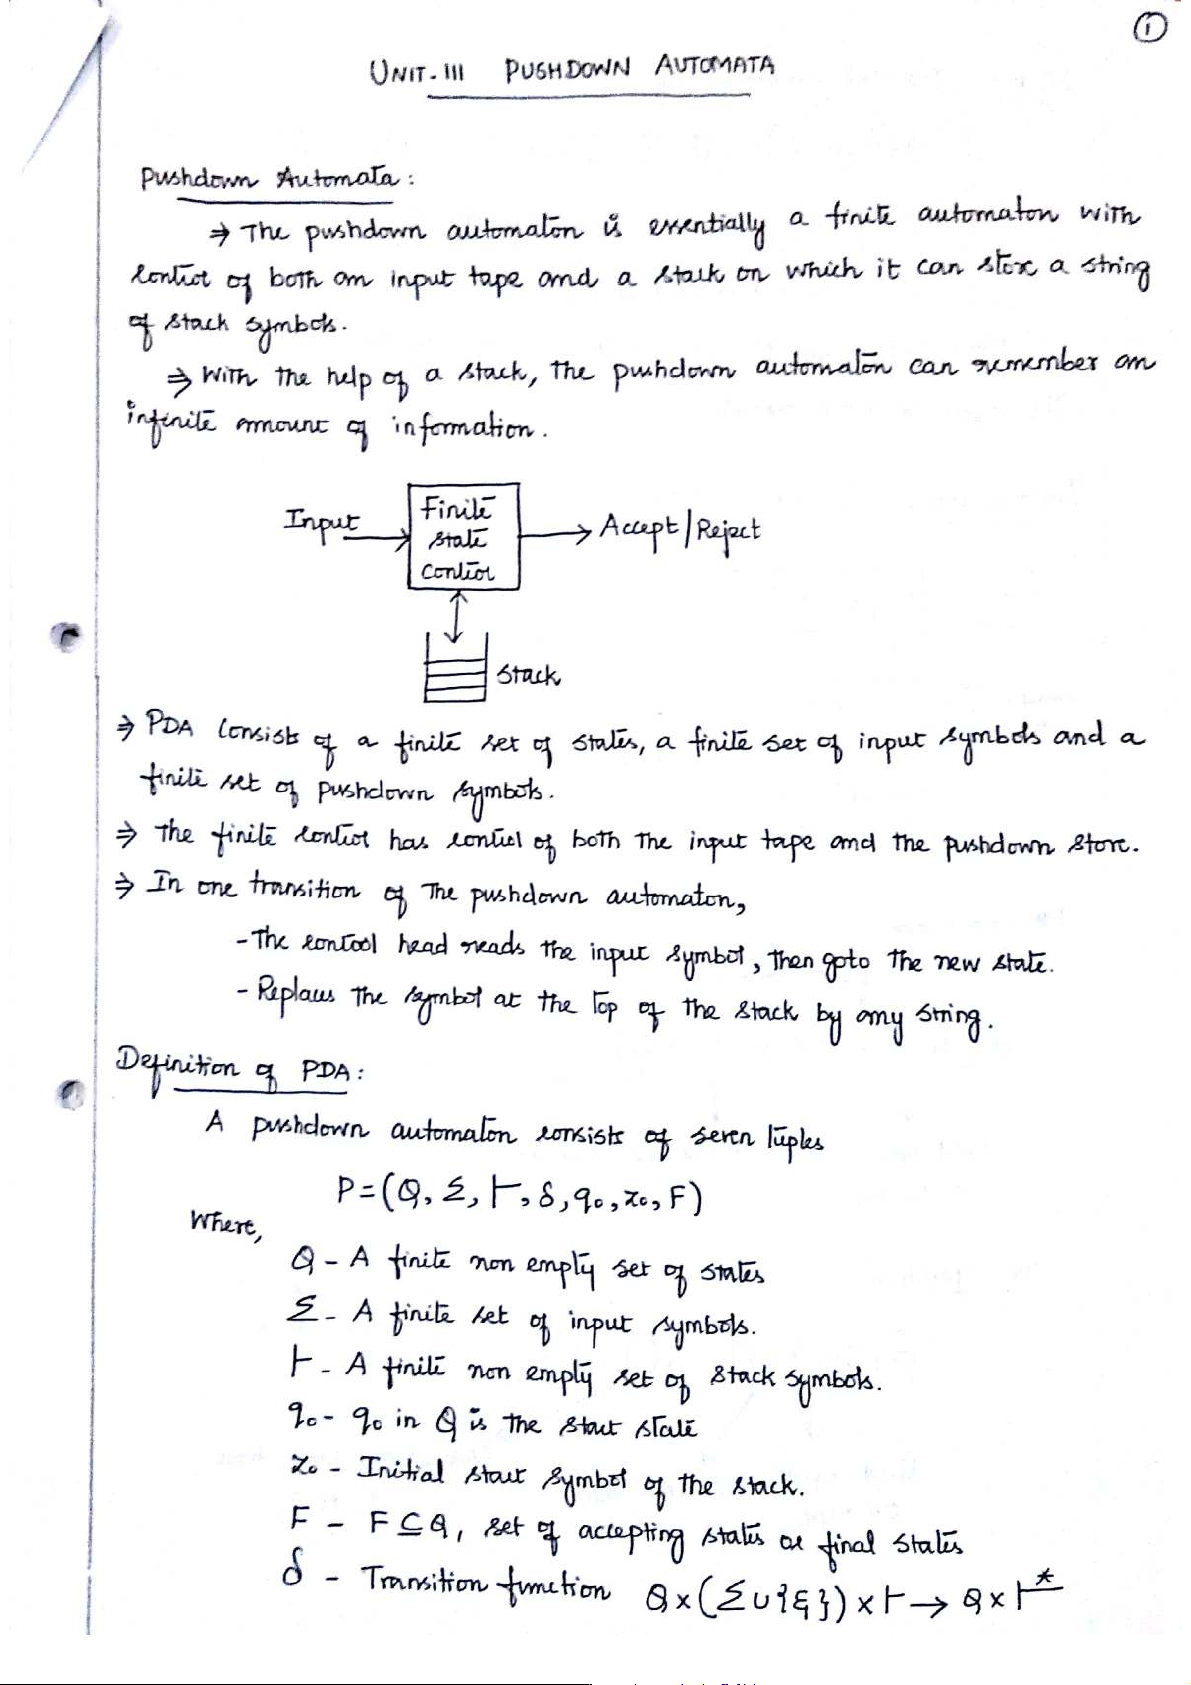 1
UNIT-III PUSHDOWN AUTOMATA
Pushdown Automata:
⇒ The pushdown automaton is essentially a finite automaton with
control of both an input tape and a stack on which it can store a string
of stack symbols.
⇒ With the help of a stack, the pushdown automaton can remember an
infinite amount of information.
Input
Finite
state
control
Accept/Reject
Stack
⇒ PDA consists of a finite set of states, a finite set of input symbols and a
finite set of pushdown symbols.
⇒ The finite control has control of both the input tape and the pushdown store.
⇒ In one transition of the pushdown automaton,
- The control head reads the input symbol, then goto the new state.
- Replaces the symbol at the top of the stack by any string.
Definition of PDA:
A pushdown automaton consists of seven tuples
P = (Q, Σ, Γ, δ, q0, z0, F)
Where,
Q - A finite non empty set of states
Σ - A finite set of input symbols.
Γ - A finite non empty set of stack symbols.
q0 - q0 in Q is the start state
z0 - Initial start symbol of the stack.
F - F ⊆ Q, set of accepting states or final states
δ - Transition function Q × (Σ ∪ {ε}) × Γ → Q × Γ*